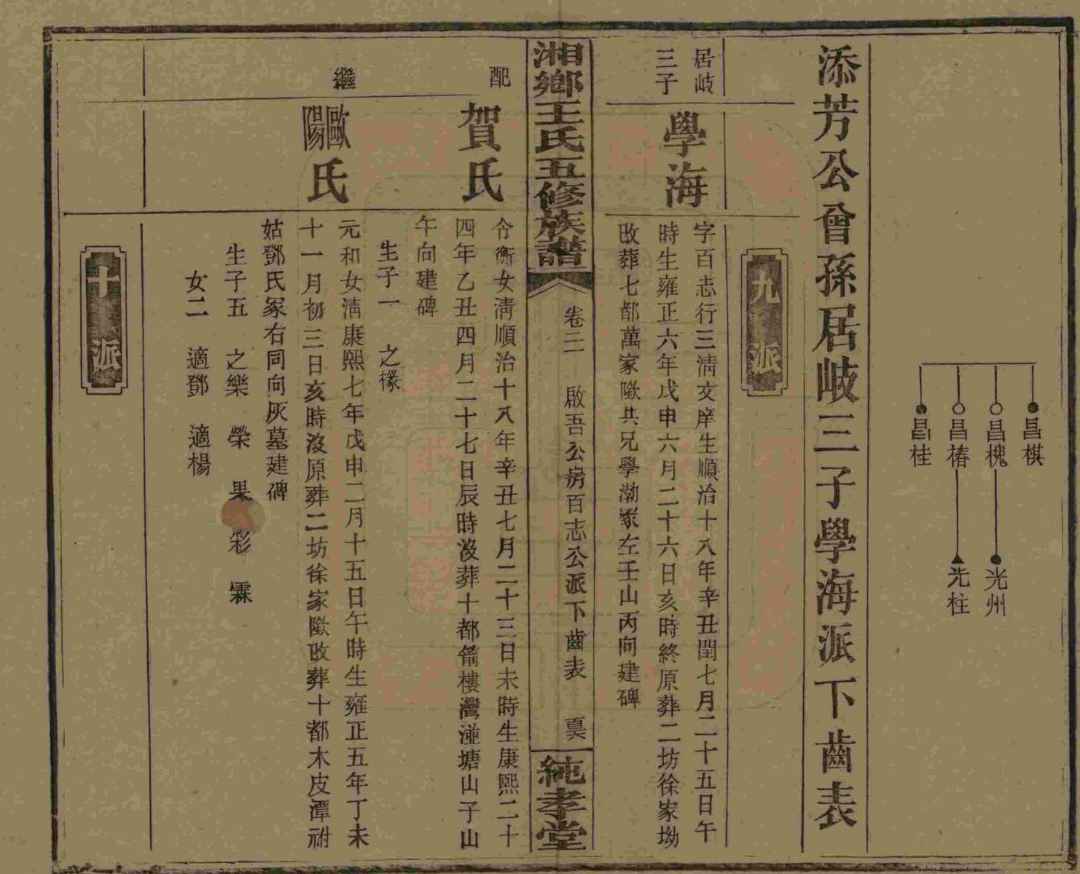 昌棋
昌槐
光州
昌椿
光柱
昌桂
添芳公曾孫居岐三子學海派下齒表
九派
居岐
三子
學海
字百志行三淸文庠生順治十八年辛丑閏七月二十五日午
時生雍正六年戊申六月二十六日亥時終原葬二坊徐家坳
改葬七都萬家
共兄學渤冢左壬山丙向建碑
湘鄉王氏五修族譜
卷二
啟吾公房百志公派下齒表
純孝堂
配
賀氏
衡女淸順治十八年辛丑七月二十三日未時生康熙二十
四年乙丑四月二十七日辰時沒葬十都
樓灣
塘山子山
午向建碑
生子一 之椽
繼
歐陽氏
元和女淸康熙七年戊申二月十五日午時生雍正五年丁未
十一月初三日亥時沒原葬二坊徐家
改葬十都木皮潭祔
姑鄧氏冢右同向灰墓建碑
生子五 之樂 榮 果 彩 霖
女二 適鄧 適楊
十派